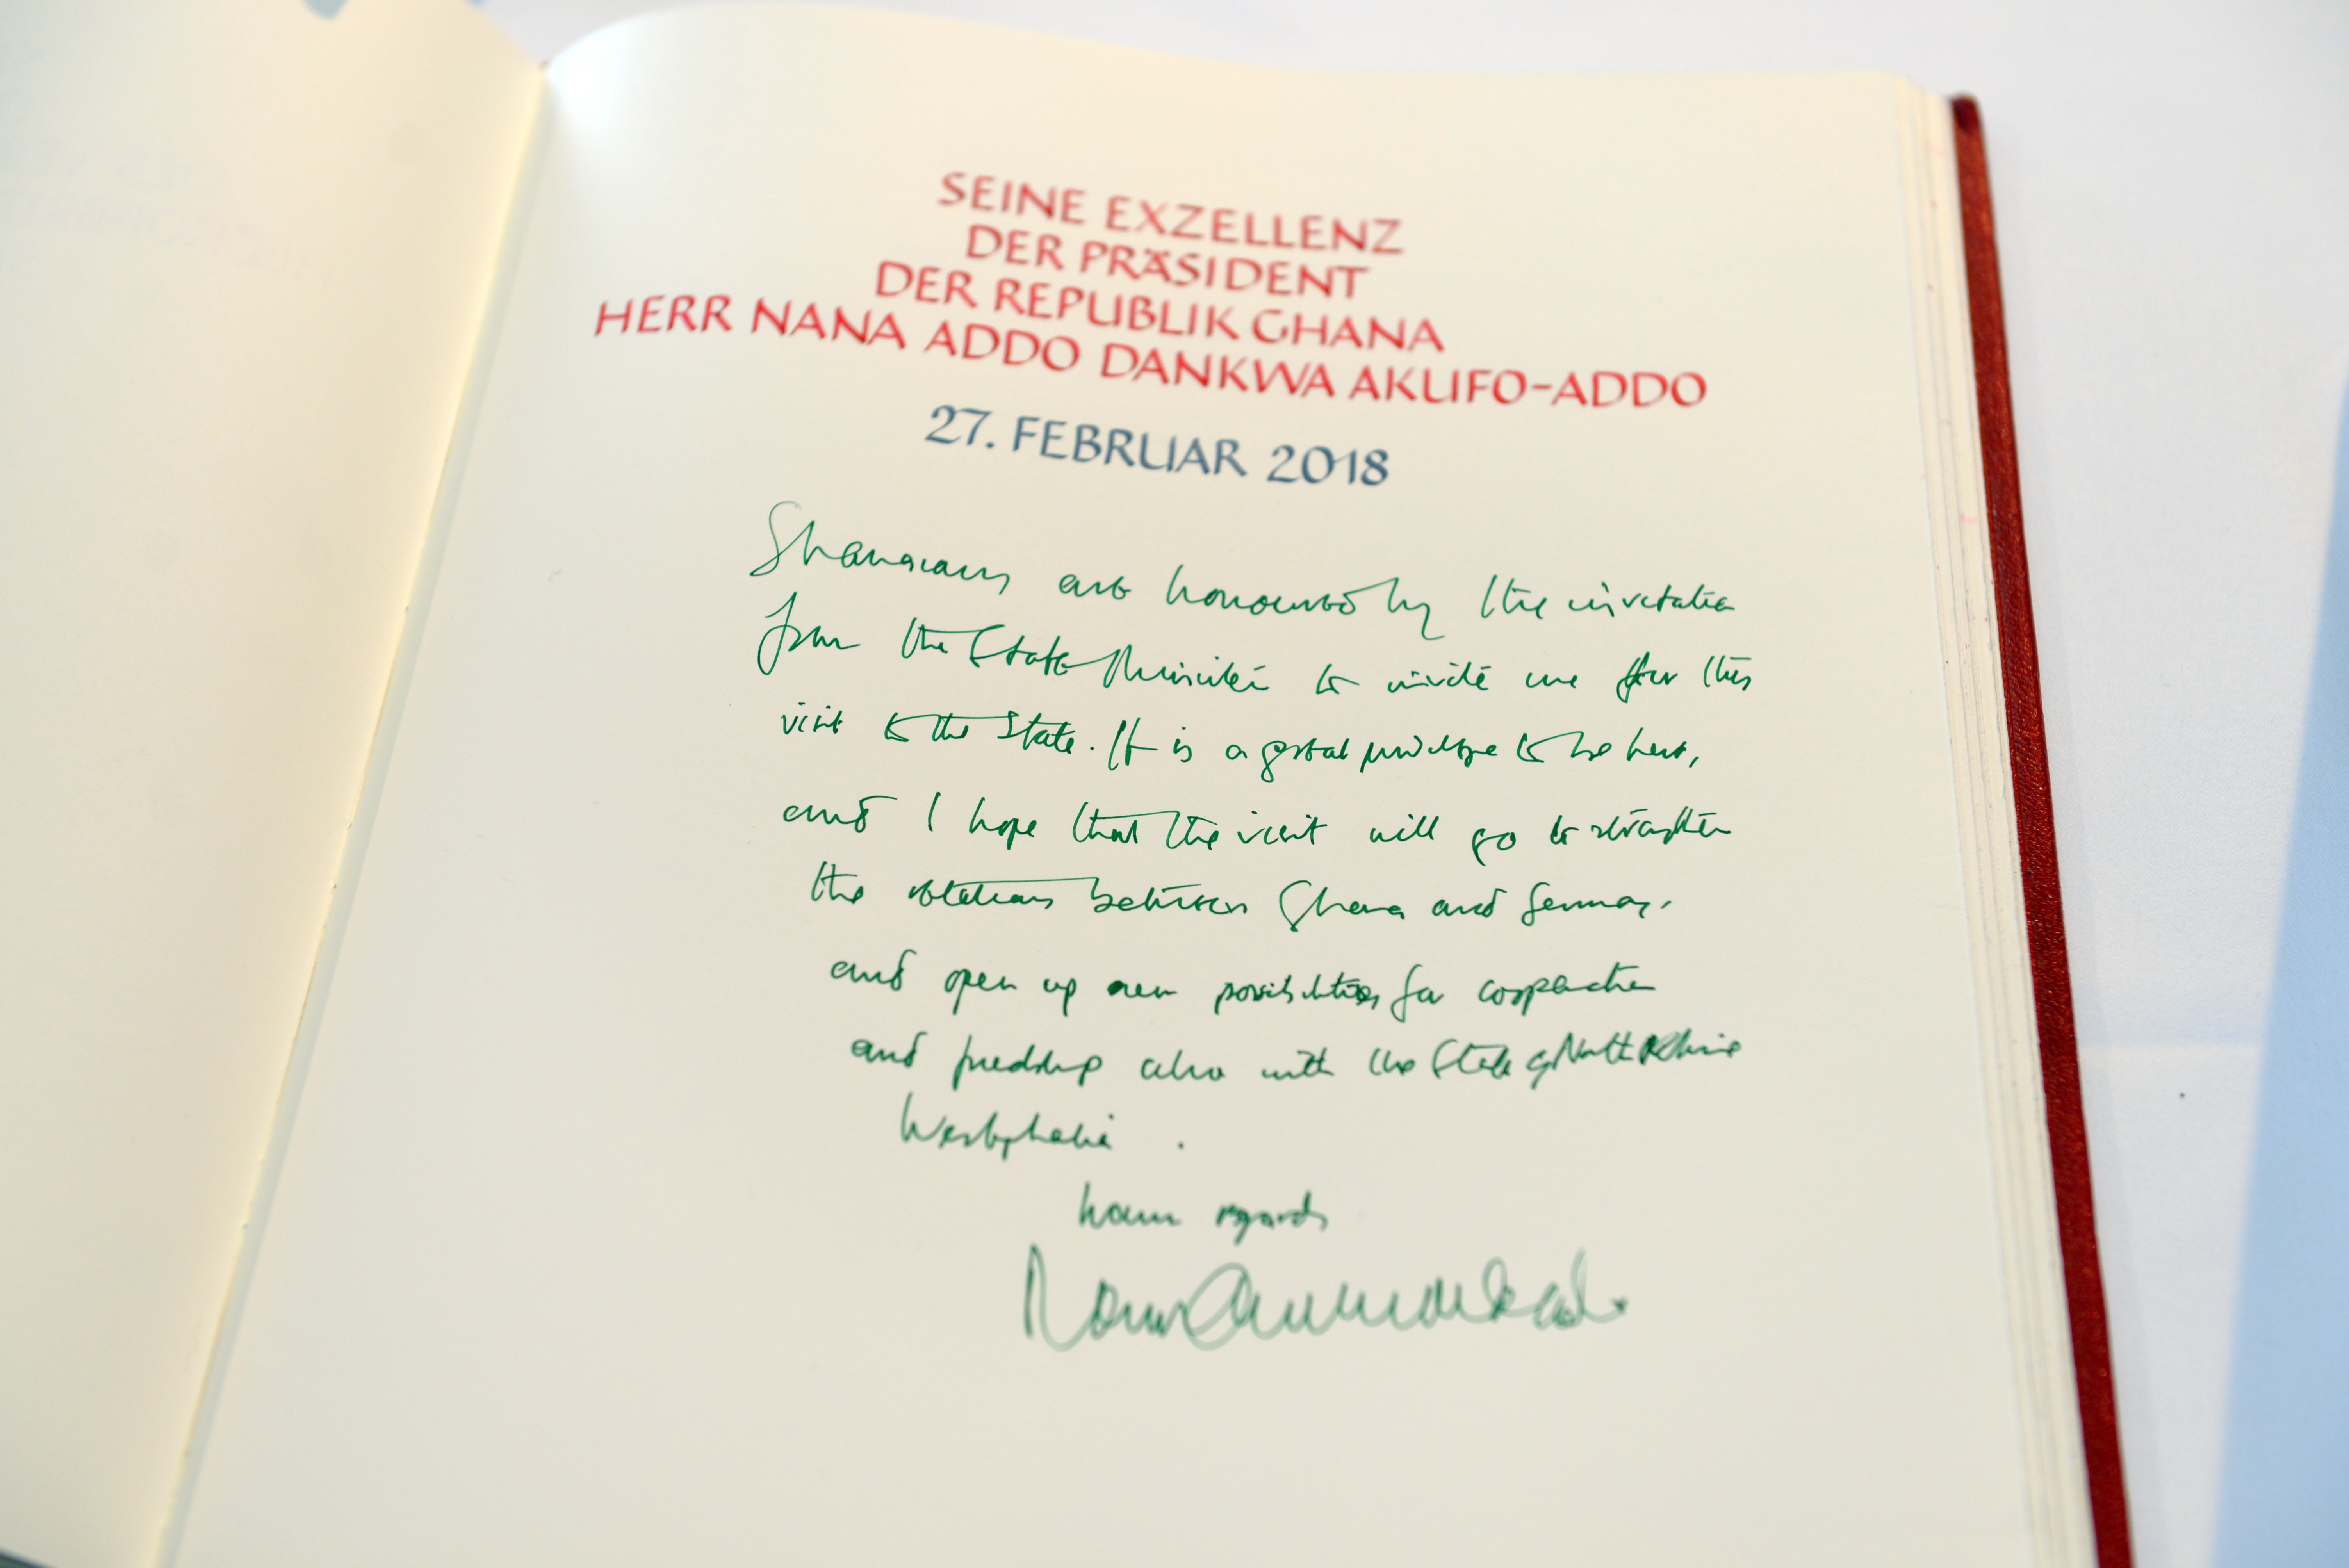 SEINE EXZELLENZ
DER PRÄSIDENT
DER REPUBLIK GHANA
HERR NANA ADDO DANKWA AKUFO-ADDO
27. FEBRUAR 2018
Ghanaians are honoured by the invitation
from the State Minister to invite me for this
visit to the State. It is a great privilege to be here,
and I hope that the visit will go to strengthen
the relations between Ghana and Germany,
and open up new possibilities for cooperation
and friendship also with the State of North Rhine
Westphalia.
Warm regards